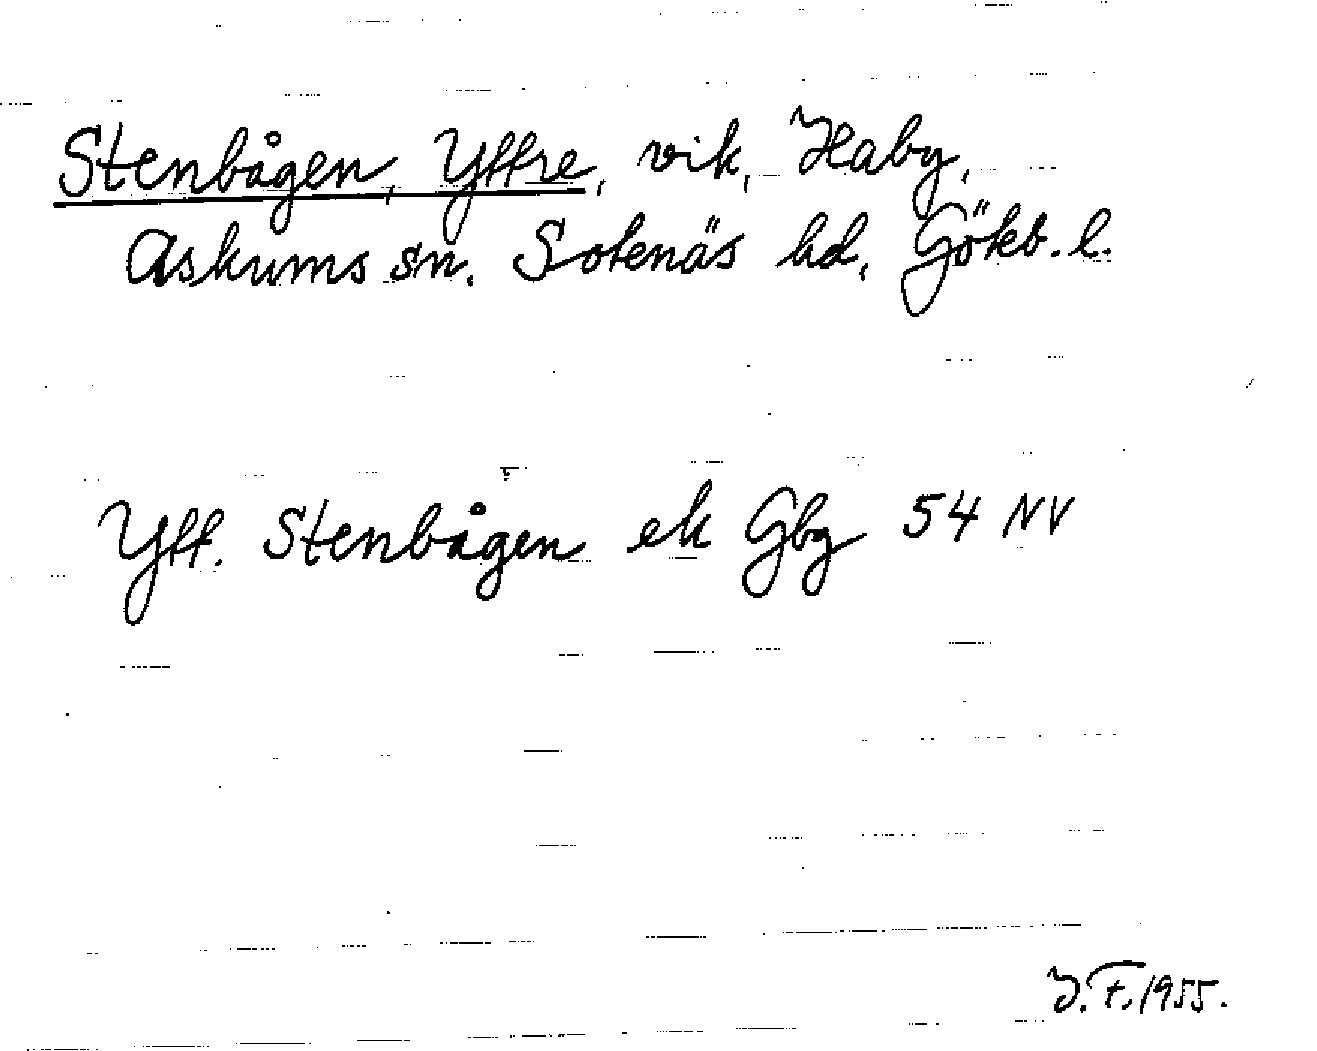 Stenbågen, Yffre, vik, Haby,
Askums sn. Sotenäs hd, Göteb. l.
Yff. Stenbågen ek Gbg 54 NV
J.F. 1955.